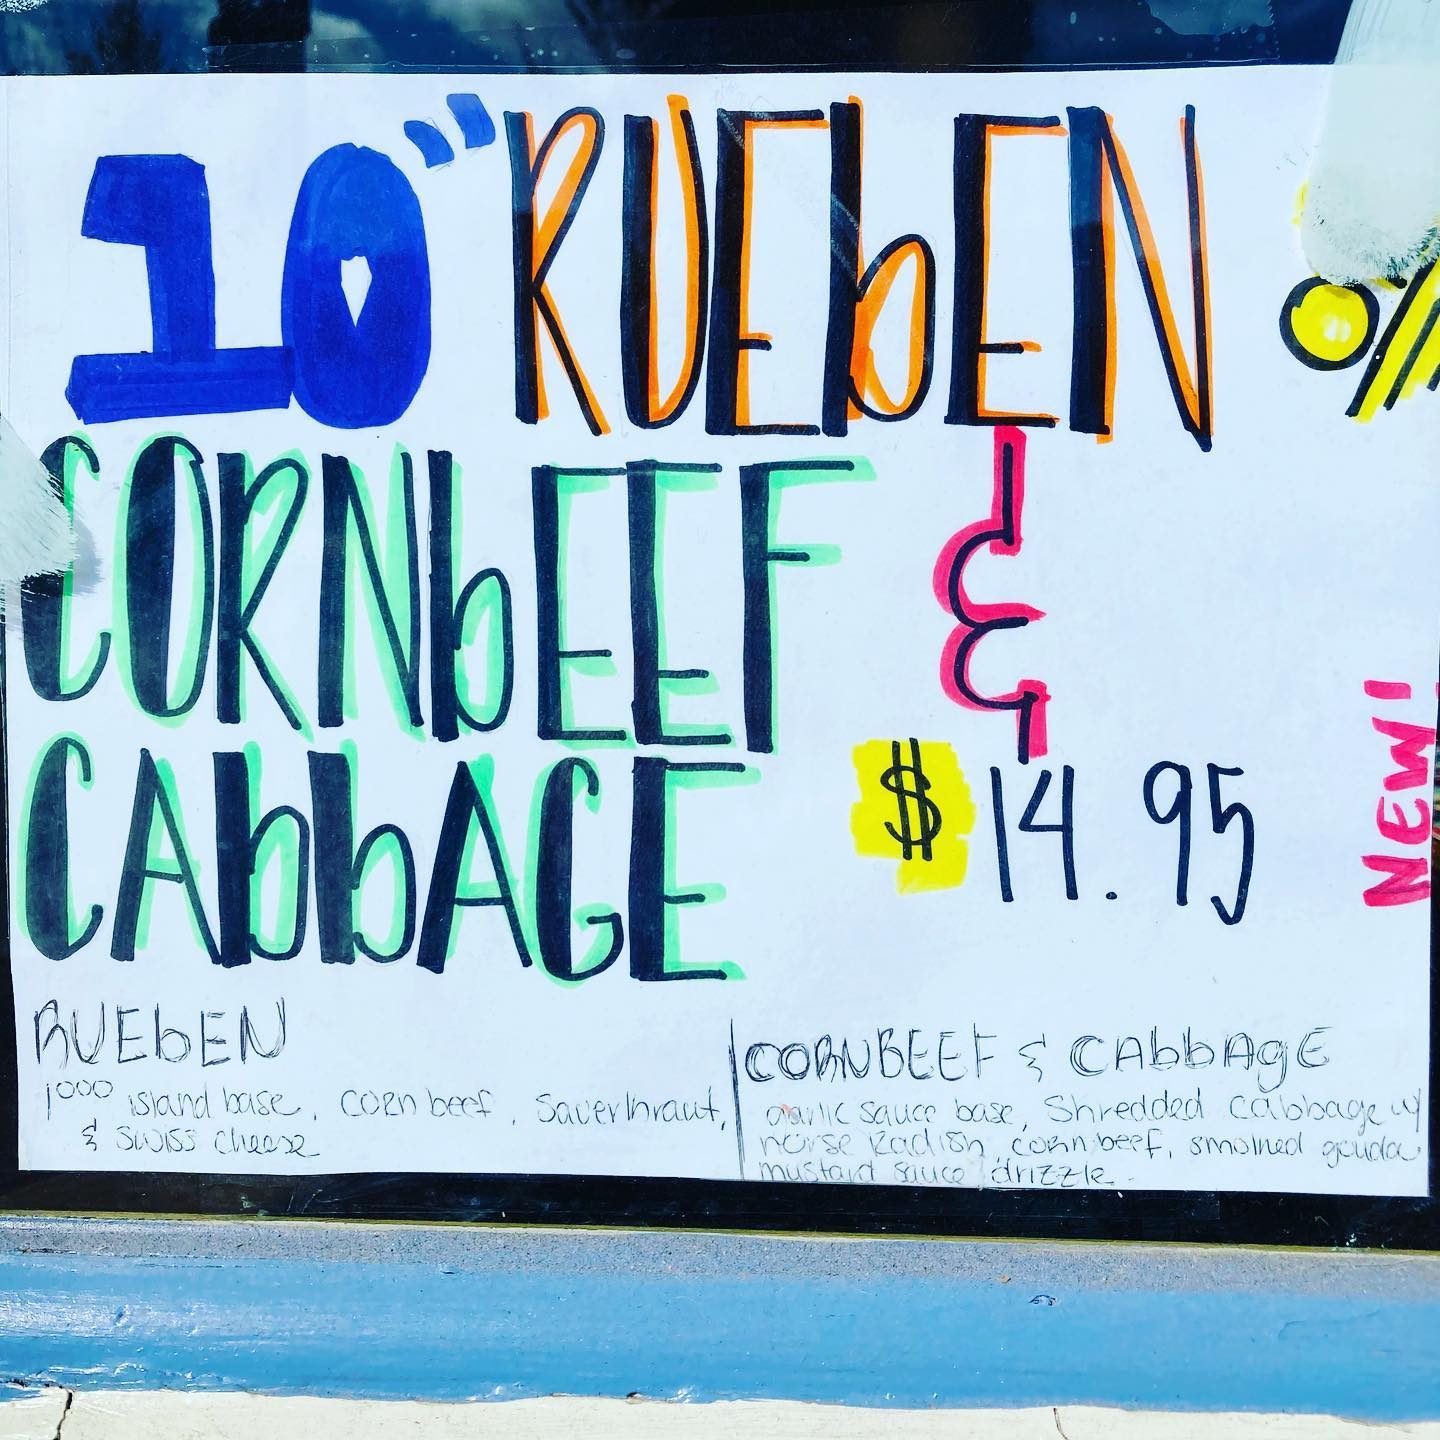 10" RUEbEN
&
CORNbEEF
CAbbAGE
$14.95
NEW!
%
RUEbEN
1000 island base, corn beef, sauerkraut,
& swiss cheese
CORNBEEF & CAbbAgE
garlic sauce base, shredded cabbage w/
horse radish, corn beef, smoked gouda
mustard sauce drizzle.